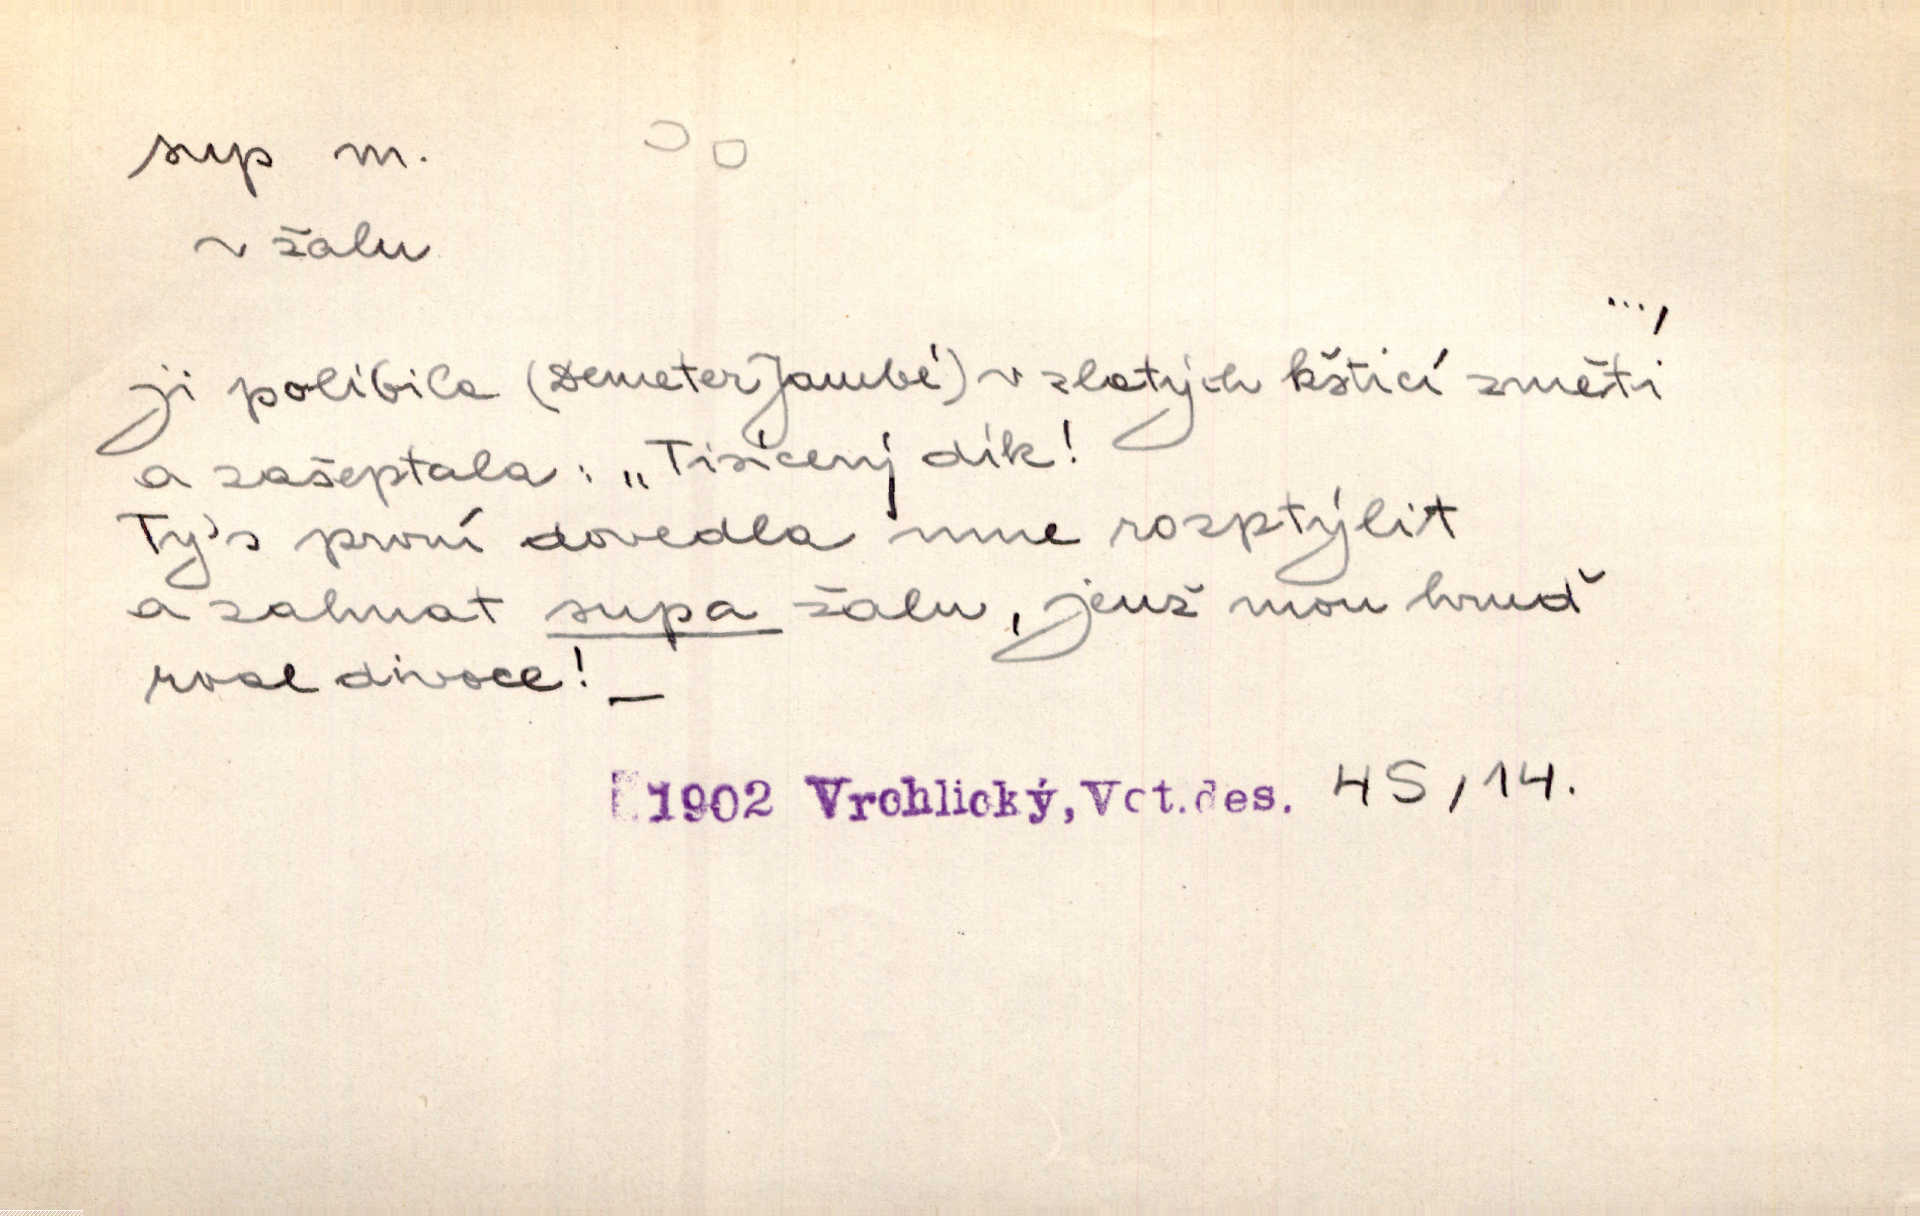 sup m.
v žalu
...,
ji políbila (Demeter Jambé) v zlatých kšticí změti
a zašeptala: „Tisícerý dík!
Ty's první dovedla mne rozptýlit
a zahnat supa žalu, jenž mou hruď
rval divoce! _
1902 Vrchlický, Vot.des. 45,14.